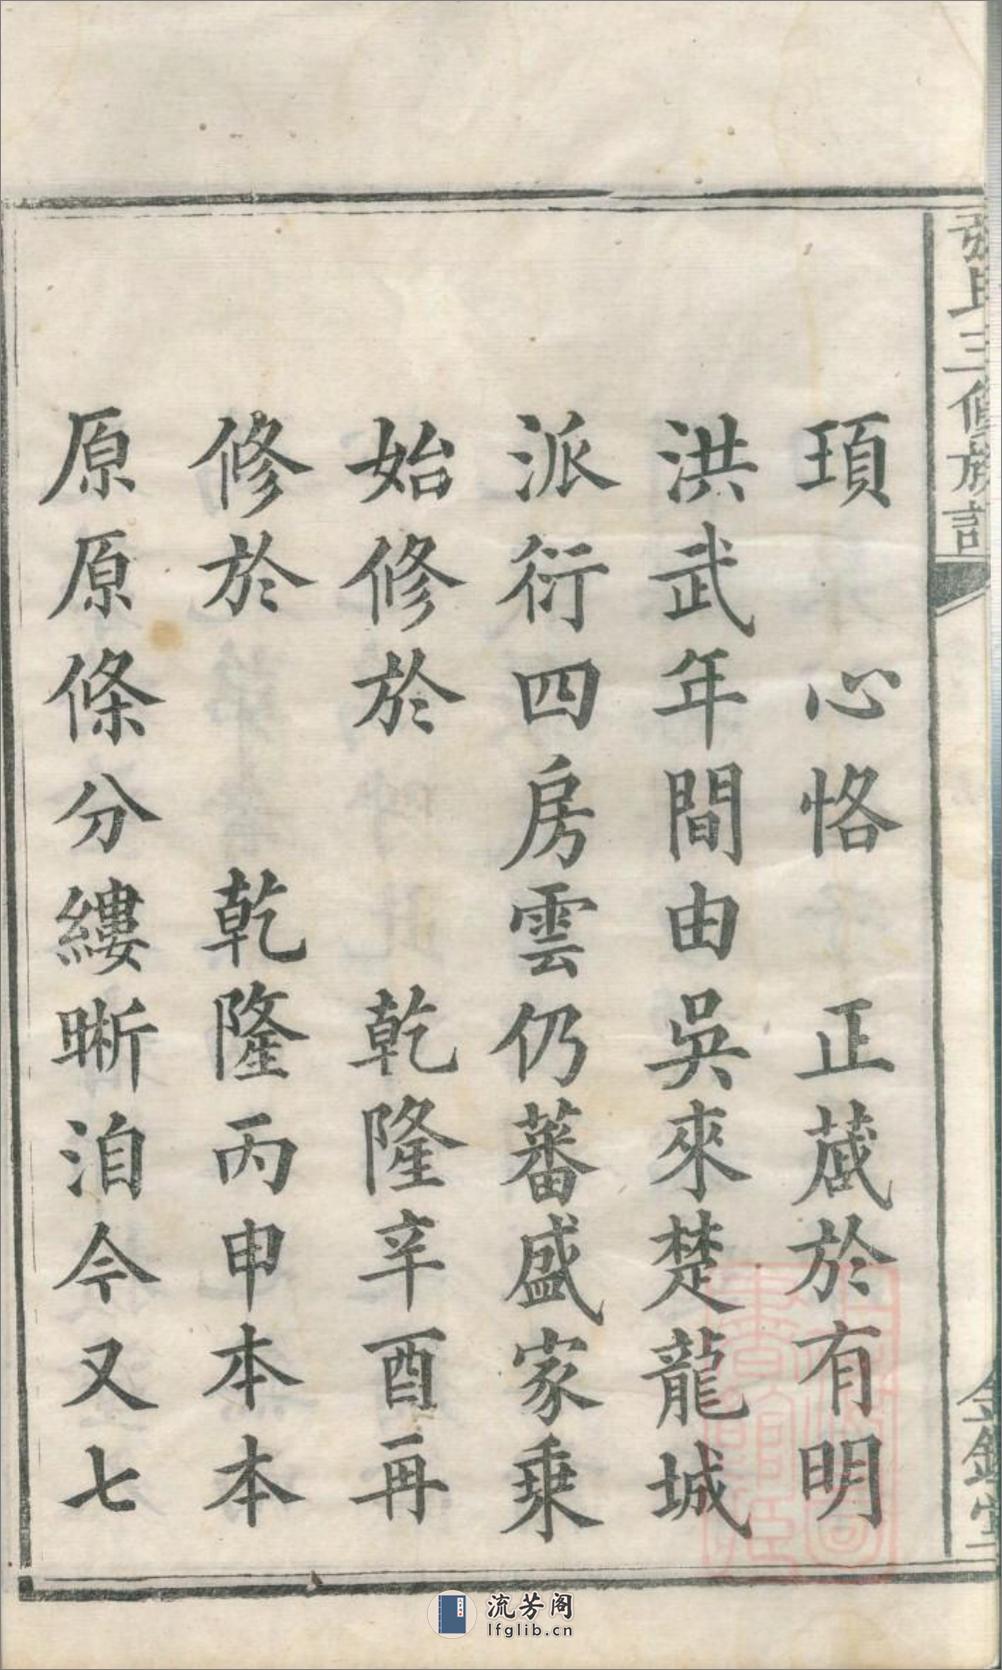 頊　心恪　正葴於有明
洪武年間由吳來楚龍城
派衍四房雲仍蕃盛家乘
始修於　　乾隆辛酉再
修於　　乾隆丙申本本
原原條分縷晣洎今又七
氏三修族
流芳阁
lfglib.cn